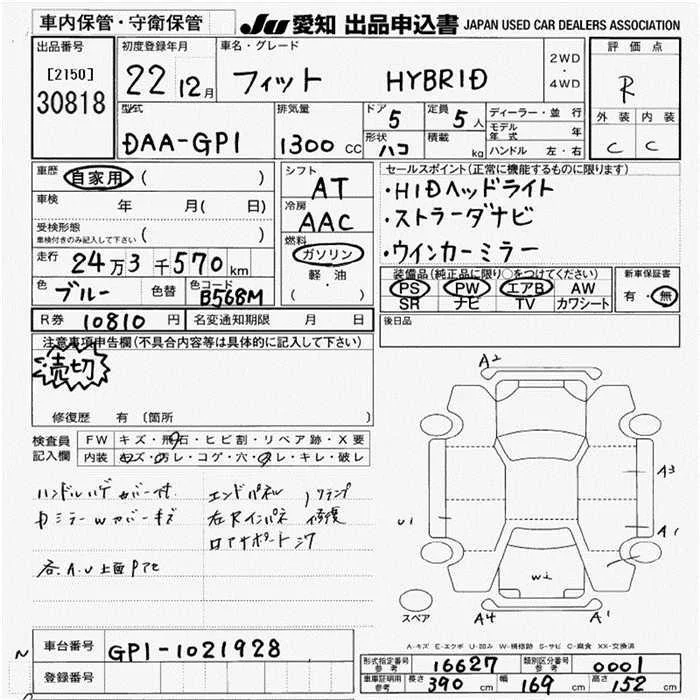 車内保管・守衛保管
JU 愛知 出品申込書 JAPAN USED CAR DEALERS ASSOCIATION
出品番号 初度登録年月 車名・グレード 2WD・4WD 評価点
[2150]
30818 22 12月 フィット HYBRID R
型式 排気量 ドア 5 定員 5人 ディーラー・並行 外装 内装
DAA-GP1 1300 CC 形状 ハコ 積載 kg モデル年式 年 C C
ハンドル 左・右
車歴 自家用 ( ) シフト AT セールスポイント(正常に機能するものに限ります)
・HIDヘッドライト
車検 年 月( 日) 冷房 AAC ・ストラーダナビ
受検形態 ( )
車検付きのみ記入して下さい
燃料 ガソリン ・ウインカーミラー
走行 24万3千570km 軽・油
( )
装備品(純正品に限り○をつけてください) 新車保証書
色 ブルー 色替 色コード B568M PS PW エアB AW 有・無
SR ナビ TV カワシート
R券 10810円 名変通知期限 月 日 後日品
注意事項申告欄(不具合内容等は具体的に記入して下さい)
売切
修復歴 有 (箇所 )
検査員記入欄 FW キズ・飛石・ヒビ割・リペア跡・X要
内装 キズ・汚レ・コゲ・穴・スレ・キレ・破レ
ハンドルハゲ カバー付 エンドパネル クランプ
カミラーWカバーキズ 左Rインパネ 修復
各.A.U上面Pアセ
A2
A3
U1 A1
W2
スペア A4 A1
A-キズ E-エクボ U-凹み W-補修跡 S-サビ C-腐食 XX-交換済
N 車台番号 GP1-1021928
登録番号
形式指定番号 参考 16627 類別区分番号 参考 0001
車庫証明用 参考 長さ 390 cm 幅 169 cm 高さ 152 cm